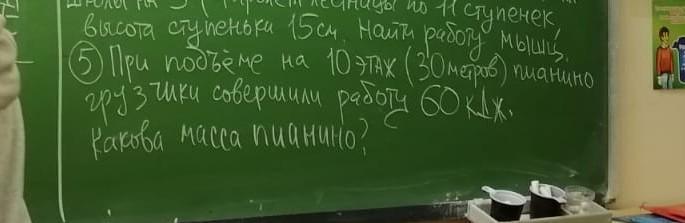 по 11 ступенек
высота ступеньки 15см. Найти работу мышц.
⑤ При подъёме на 10 этаж (30 метров) пианино
грузчики совершили работу 60 кДж.
Какова масса пианино?